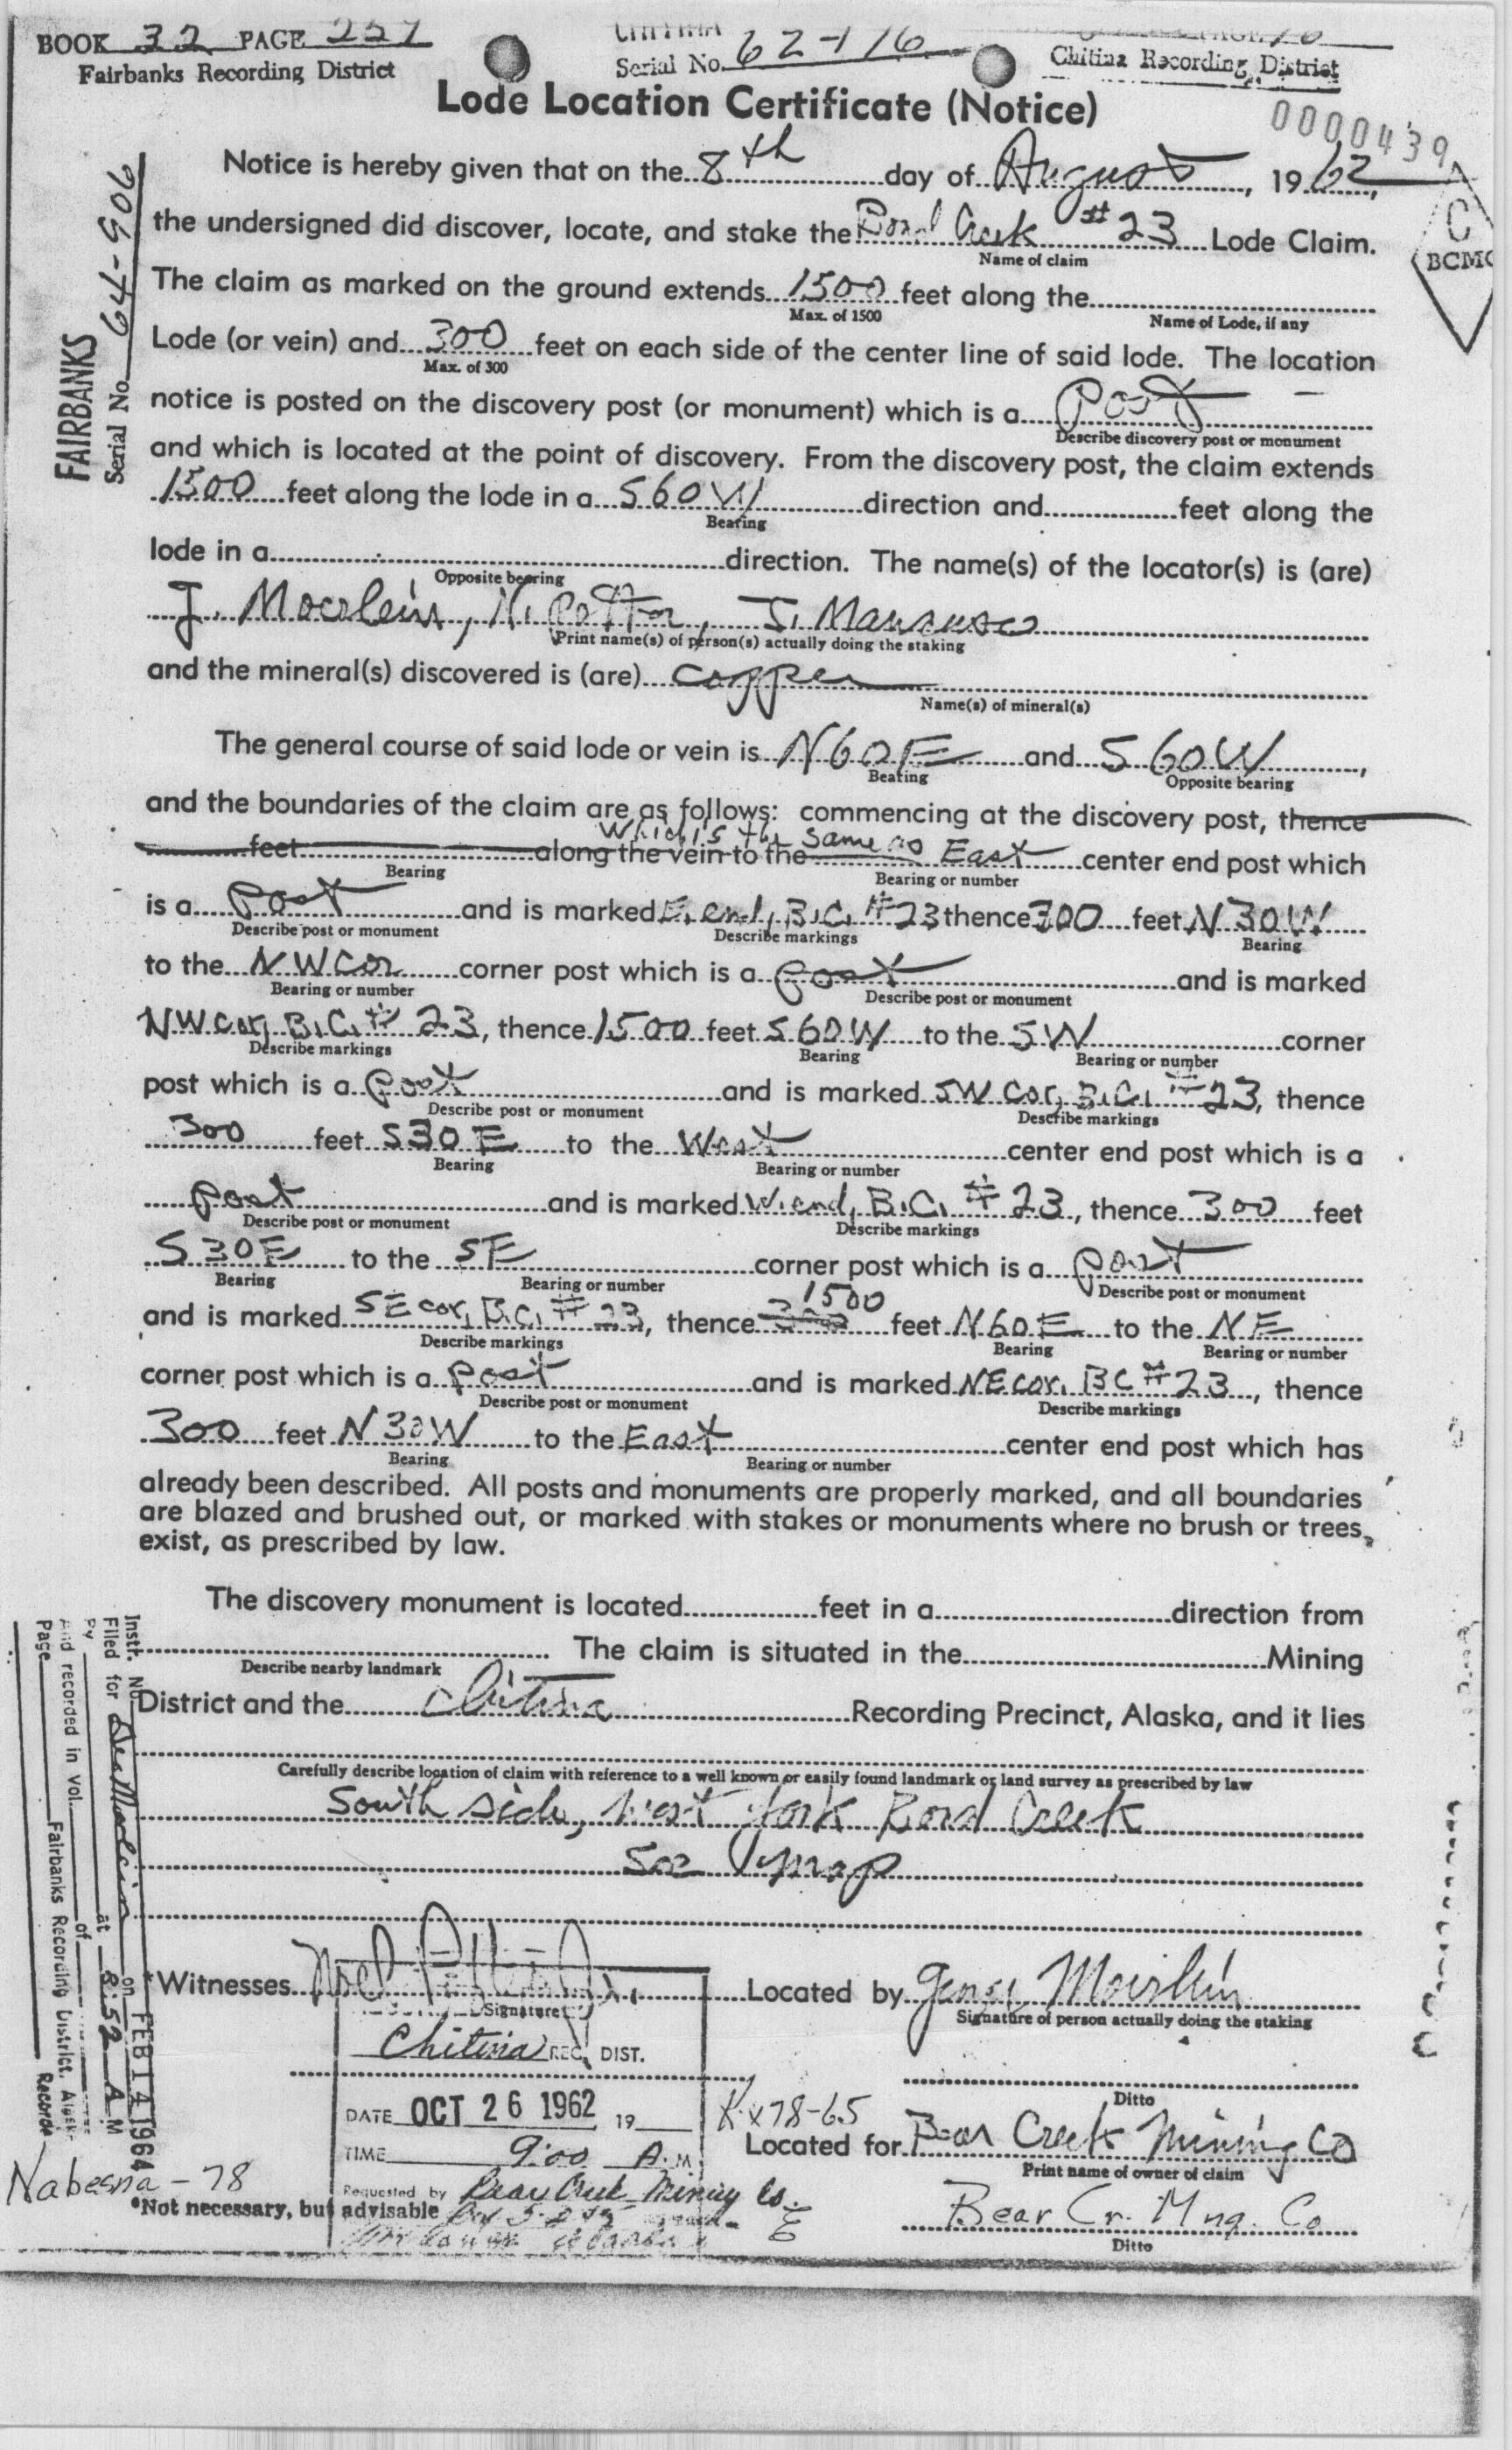 BOOK 32 PAGE 257
Fairbanks Recording District
CHITINA
Serial No. 62-116
Chitina Recording District
Lode Location Certificate (Notice)
0000439
Notice is hereby given that on the 8th day of August, 1962,
the undersigned did discover, locate, and stake the Bond Creek #23 Lode Claim.
Name of claim
BCMC
The claim as marked on the ground extends 1500 feet along the
Max. of 1500 Name of Lode, if any
Lode (or vein) and 300 feet on each side of the center line of said lode. The location
Max. of 300
notice is posted on the discovery post (or monument) which is a Post
Describe discovery post or monument
and which is located at the point of discovery. From the discovery post, the claim extends
1500 feet along the lode in a S60W direction and feet along the
Bearing
lode in a direction. The name(s) of the locator(s) is (are)
Opposite bearing
J. Moerlein, N. Potter, J. Mancuso
Print name(s) of person(s) actually doing the staking
and the mineral(s) discovered is (are) copper
Name(s) of mineral(s)
The general course of said lode or vein is N60E and S60W,
Bearing Opposite bearing
and the boundaries of the claim are as follows: commencing at the discovery post, thence
which is the same as
feet along the vein to the East center end post which
Bearing Bearing or number
is a Post and is marked E. end, B.C. #23 thence 300 feet N30W
Describe post or monument Describe markings Bearing
to the NW Cor corner post which is a post and is marked
Bearing or number Describe post or monument
NW cor, B.C. # 23, thence 1500 feet S60W to the SW corner
Describe markings Bearing Bearing or number
post which is a post and is marked SW Cor, B.C. #23, thence
Describe post or monument Describe markings
300 feet S30E to the West center end post which is a
Bearing Bearing or number
post and is marked W. end, B.C. # 23, thence 300 feet
Describe post or monument Describe markings
S30E to the SE corner post which is a post
Bearing Bearing or number Describe post or monument
and is marked SE cor, B.C. # 23, thence 300 1500 feet N60E to the NE
Describe markings Bearing Bearing or number
corner post which is a post and is marked NE cor. BC #23, thence
Describe post or monument Describe markings
300 feet N30W to the East center end post which has
Bearing Bearing or number
already been described. All posts and monuments are properly marked, and all boundaries
are blazed and brushed out, or marked with stakes or monuments where no brush or trees
exist, as prescribed by law.
The discovery monument is located feet in a direction from
The claim is situated in the Mining
Describe nearby landmark
District and the Chitina Recording Precinct, Alaska, and it lies
Carefully describe location of claim with reference to a well known or easily found landmark or land survey as prescribed by law
South side, West fork Bond Creek
See map
*Witnesses Located by George Moerlein
Signature Signature of person actually doing the staking
Chitina REC. DIST.
Ditto
DATE OCT 26 1962 19
Kx78-65
TIME 9:00 A.M.
Located for Bear Creek Mining Co
Print name of owner of claim
Requested by Bear Creek Mining Co.
Nabesna - 78
*Not necessary, but advisable
Bear Cr. Mng. Co
Ditto
FAIRBANKS
Serial No. 64-906
Instr. No.
Filed for on FEB 14 1964
By at 8:52 A M
And recorded in Vol. of
Page Fairbanks Recording District, Alaska
Records